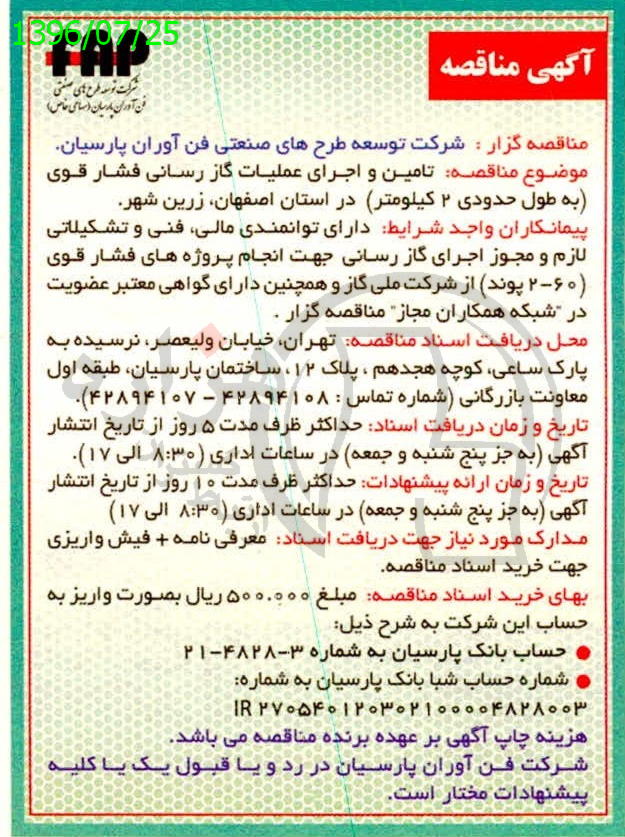 1396/07/25
FAP
شرکت توسعه طرح های صنعتی
فن آوران پارسیان (سهامی خاص)
آگهی مناقصه
مناقصه گزار : شرکت توسعه طرح های صنعتی فن آوران پارسیان.
موضوع مناقصه: تامین و اجرای عملیات گاز رسانی فشار قوی
(به طول حدودی ۲ کیلومتر) در استان اصفهان، زرین شهر.
پیمانکاران واجد شرایط: دارای توانمندی مالی، فنی و تشکیلاتی
لازم و مجوز اجرای گاز رسانی جهت انجام پروژه های فشار قوی
(۶۰-۲ پوند) از شرکت ملی گاز و همچنین دارای گواهی معتبر عضویت
در "شبکه همکاران مجاز" مناقصه گزار .
محل دریافت اسناد مناقصه: تهران، خیابان ولیعصر، نرسیده به
پارک ساعی، کوچه هجدهم ، پلاک ۱۲، ساختمان پارسیان، طبقه اول
معاونت بازرگانی (شماره تماس : ۴۲۸۹۴۱۰۸ – ۴۲۸۹۴۱۰۷).
تاریخ و زمان دریافت اسناد: حداکثر ظرف مدت ۵ روز از تاریخ انتشار
آگهی (به جز پنج شنبه و جمعه) در ساعات اداری (۸:۳۰ الی ۱۷).
تاریخ و زمان ارائه پیشنهادات: حداکثر ظرف مدت ۱۰ روز از تاریخ انتشار
آگهی (به جز پنج شنبه و جمعه) در ساعات اداری (۸:۳۰ الی ۱۷)
مدارک مورد نیاز جهت دریافت اسناد: معرفی نامه + فیش واریزی
جهت خرید اسناد مناقصه.
بهای خرید اسناد مناقصه: مبلغ ۵۰۰.۰۰۰ ریال بصورت واریز به
حساب این شرکت به شرح ذیل:
● حساب بانک پارسیان به شماره ۳-۴۸۲۸-۲۱
● شماره حساب شبا بانک پارسیان به شماره:
IR ۲۷۰۵۴۰۱۲۰۳۰۲۱۰۰۰۰۴۸۲۸۰۰۳
هزینه چاپ آگهی بر عهده برنده مناقصه می باشد.
شرکت فن آوران پارسیان در رد و یا قبول یک یا کلیه
پیشنهادات مختار است.